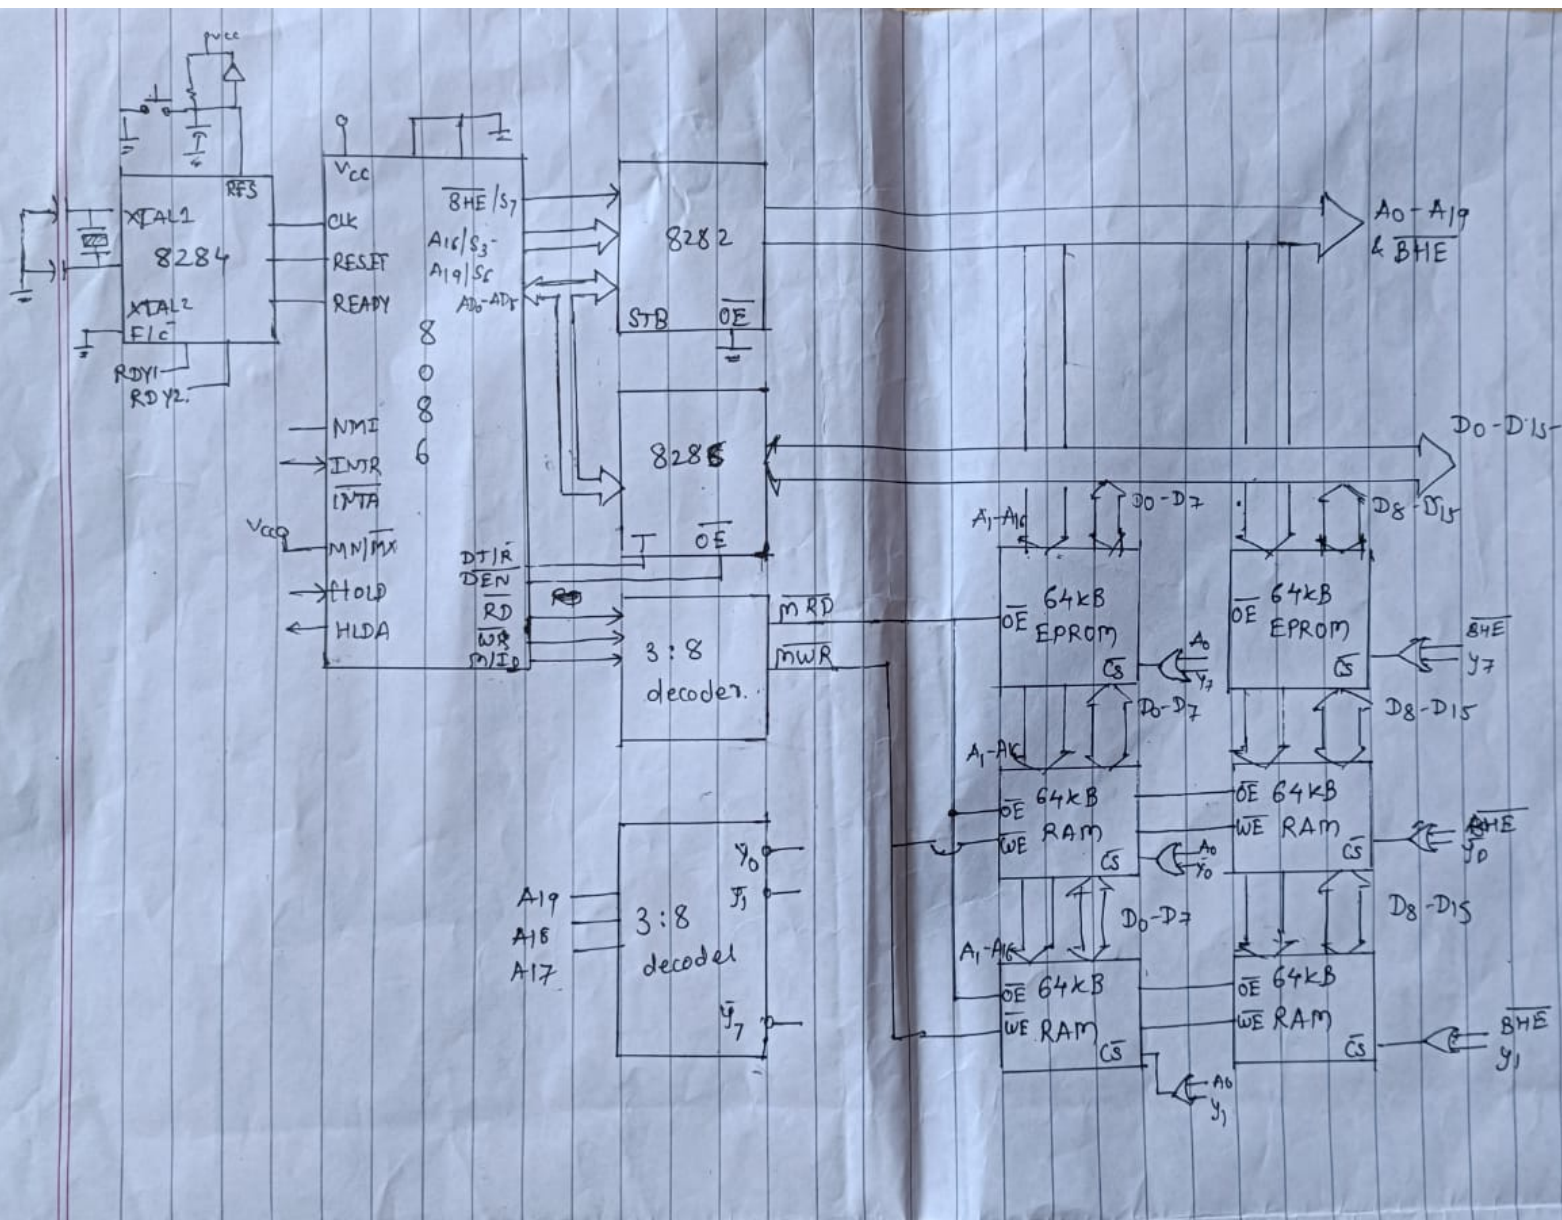 VCC
RES
XTAL1
8284
XTAL2
F/C̅
RDY1
RDY2
VCC
CLK
RESET
READY
8
0
8
6
NMI
INTR
I̅N̅T̅A̅
VCC
MN/M̅X̅
HOLD
HLDA
B̅H̅E̅/S7
A16/S3-
A19/S6
DT/R̅
D̅E̅N̅
R̅D̅
W̅R̅
M/IO
8282
STB
O̅E̅
T
O̅E̅
M̅R̅D̅
M̅W̅R̅
3:8
decoder
A19
A18
A17
3:8
decoder
Y̅0
Y̅1
Y̅7
A0-A19
& B̅H̅E̅
D0-D15
A1-A16
D0-D7
D8-D15
O̅E̅
64KB
EPROM
C̅S̅
A0
Y̅7
O̅E̅
64KB
EPROM
C̅S̅
B̅H̅E̅
Y7
D0-D7
D8-D15
A1-A16
O̅E̅ 64KB
W̅E̅ RAM
C̅S̅
A0
Y̅0
O̅E̅ 64KB
W̅E̅ RAM
C̅S̅
B̅H̅E̅
Y̅0
D0-D7
D8-D15
A1-A16
O̅E̅ 64KB
W̅E̅ RAM
C̅S̅
A0
Y1
O̅E̅ 64KB
W̅E̅ RAM
C̅S̅
B̅H̅E̅
Y1